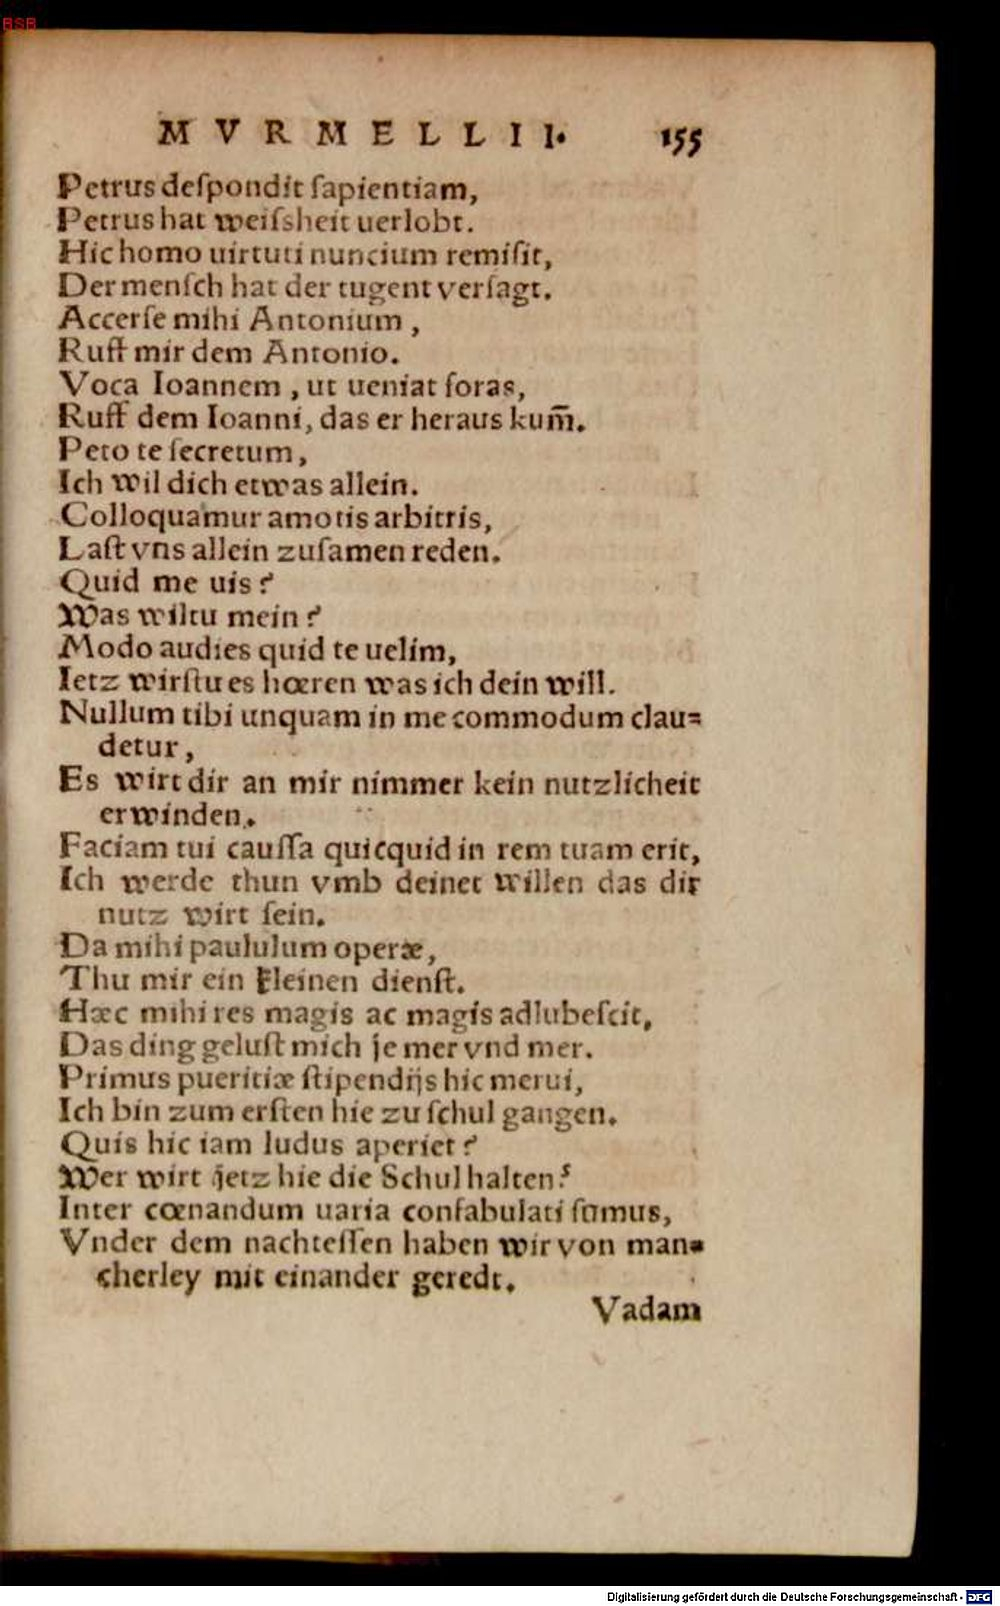 BSB
MVRMELLII. 155
Petrus deſpondit ſapientiam,
Petrus hat weiſsheit uerlobt.
Hic homo uirtuti nuncium remiſit,
Der menſch hat der tugent verſagt.
Accerſe mihi Antonium,
Ruff mir dem Antonio.
Voca Ioannem, ut ueniat foras,
Ruff dem Ioanni, das er heraus kum̃.
Peto te ſecretum,
Ich wil dich etwas allein.
Colloquamur amotis arbitris,
Laſt vns allein zuſamen reden.
Quid me uis?
Was wiltu mein?
Modo audies quid te uelim,
Ietz wirſtu es hœren was ich dein will.
Nullum tibi unquam in me commodum clau⸗
detur,
Es wirt dir an mir nimmer kein nutzlicheit
erwinden.
Faciam tui cauſſa quicquid in rem tuam erit,
Ich werde thun vmb deinet willen das dir
nutz wirt ſein.
Da mihi paululum operæ,
Thu mir ein kleinen dienſt.
Hæc mihi res magis ac magis adlubeſcit,
Das ding geluſt mich je mer vnd mer.
Primus pueritiæ ſtipendijs hic merui,
Ich bin zum erſten hie zu ſchul gangen.
Quis hic iam ludus aperiet?
Wer wirt jetz hie die Schul halten?
Inter cœnandum uaria confabulati ſumus,
Vnder dem nachteſſen haben wir von man⸗
cherley mit einander geredt.
Vadam
Digitalisierung gefördert durch die Deutsche Forschungsgemeinschaft - DFG